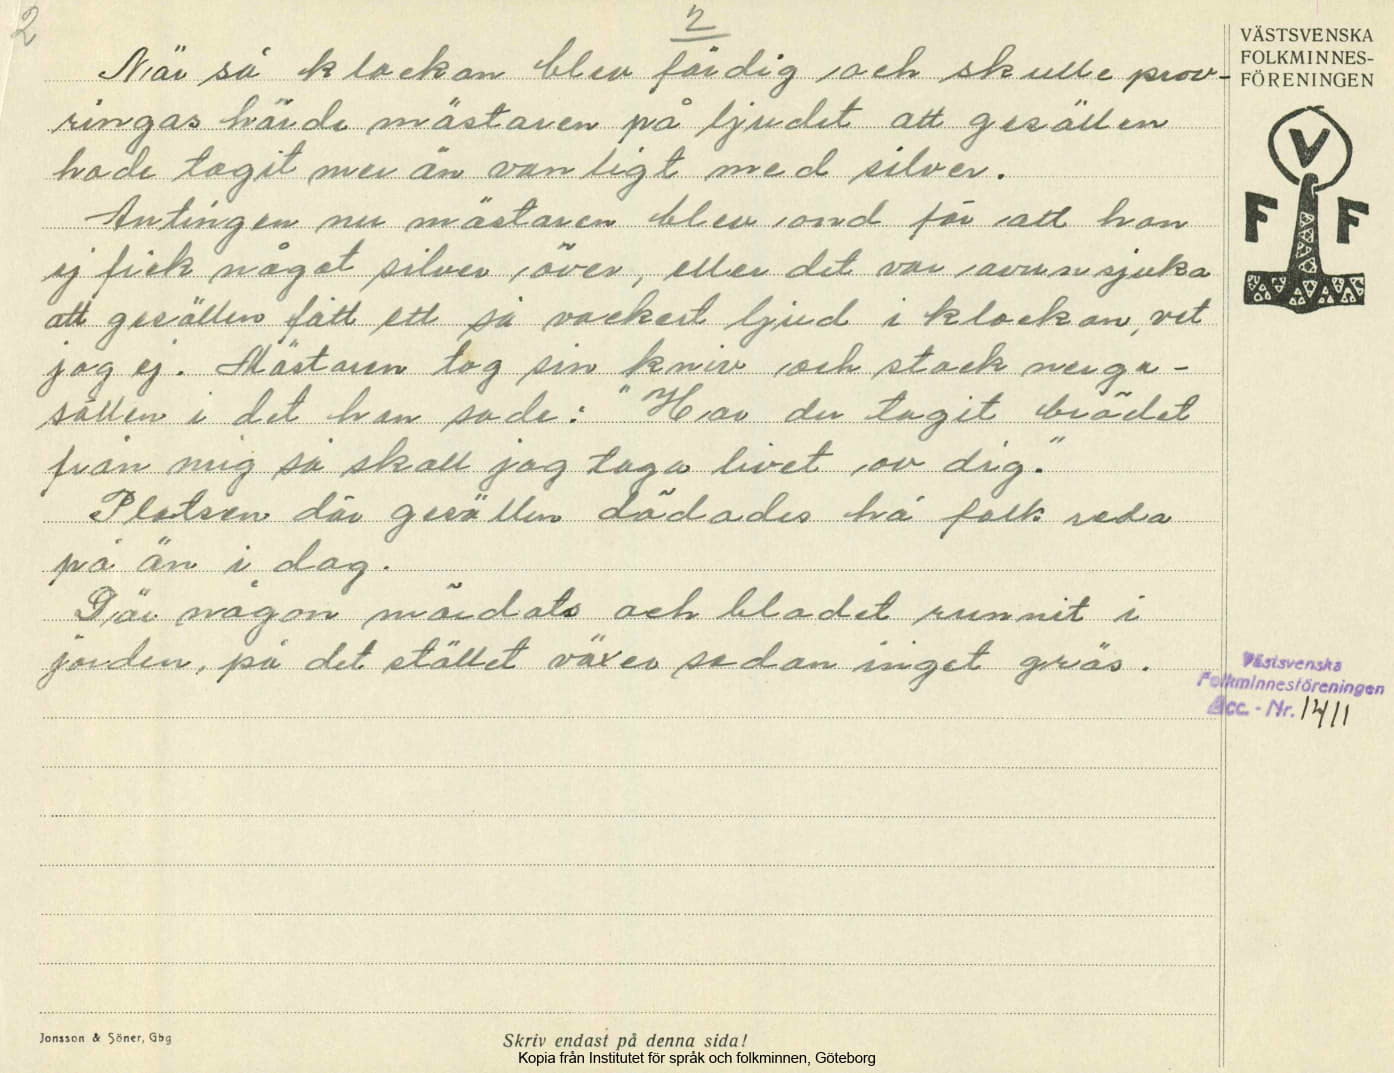 2
2
När så klockan blev färdig och skulle prov-
ringas hörde mästaren på ljudet att gesällen
hade tagit mer än vanligt med silver.
Antingen nu mästaren blev ond för att han
ej fick något silver över, eller det var avundsjuka
att gesällen fått ett så vackert ljud i klockan, vet
jag ej. Mästaren tog sin kniv och stack ner ge-
sällen i det han sade: "Har du tagit brödet
från mig så skall jag taga livet av dig."
Platsen där gesällen dödades há folk reda
på än i dag.
Där någon mördats och blodet runnit i
jorden, på det stället växer sedan inget gräs.
VÄSTSVENSKA
FOLKMINNES-
FÖRENINGEN
V
F F
Västsvenska
Folkminnesföreningen
Acc.-Nr. 1411
Jonsson & Söner, Gbg
Skriv endast på denna sida!
Kopia från Institutet för språk och folkminnen, Göteborg